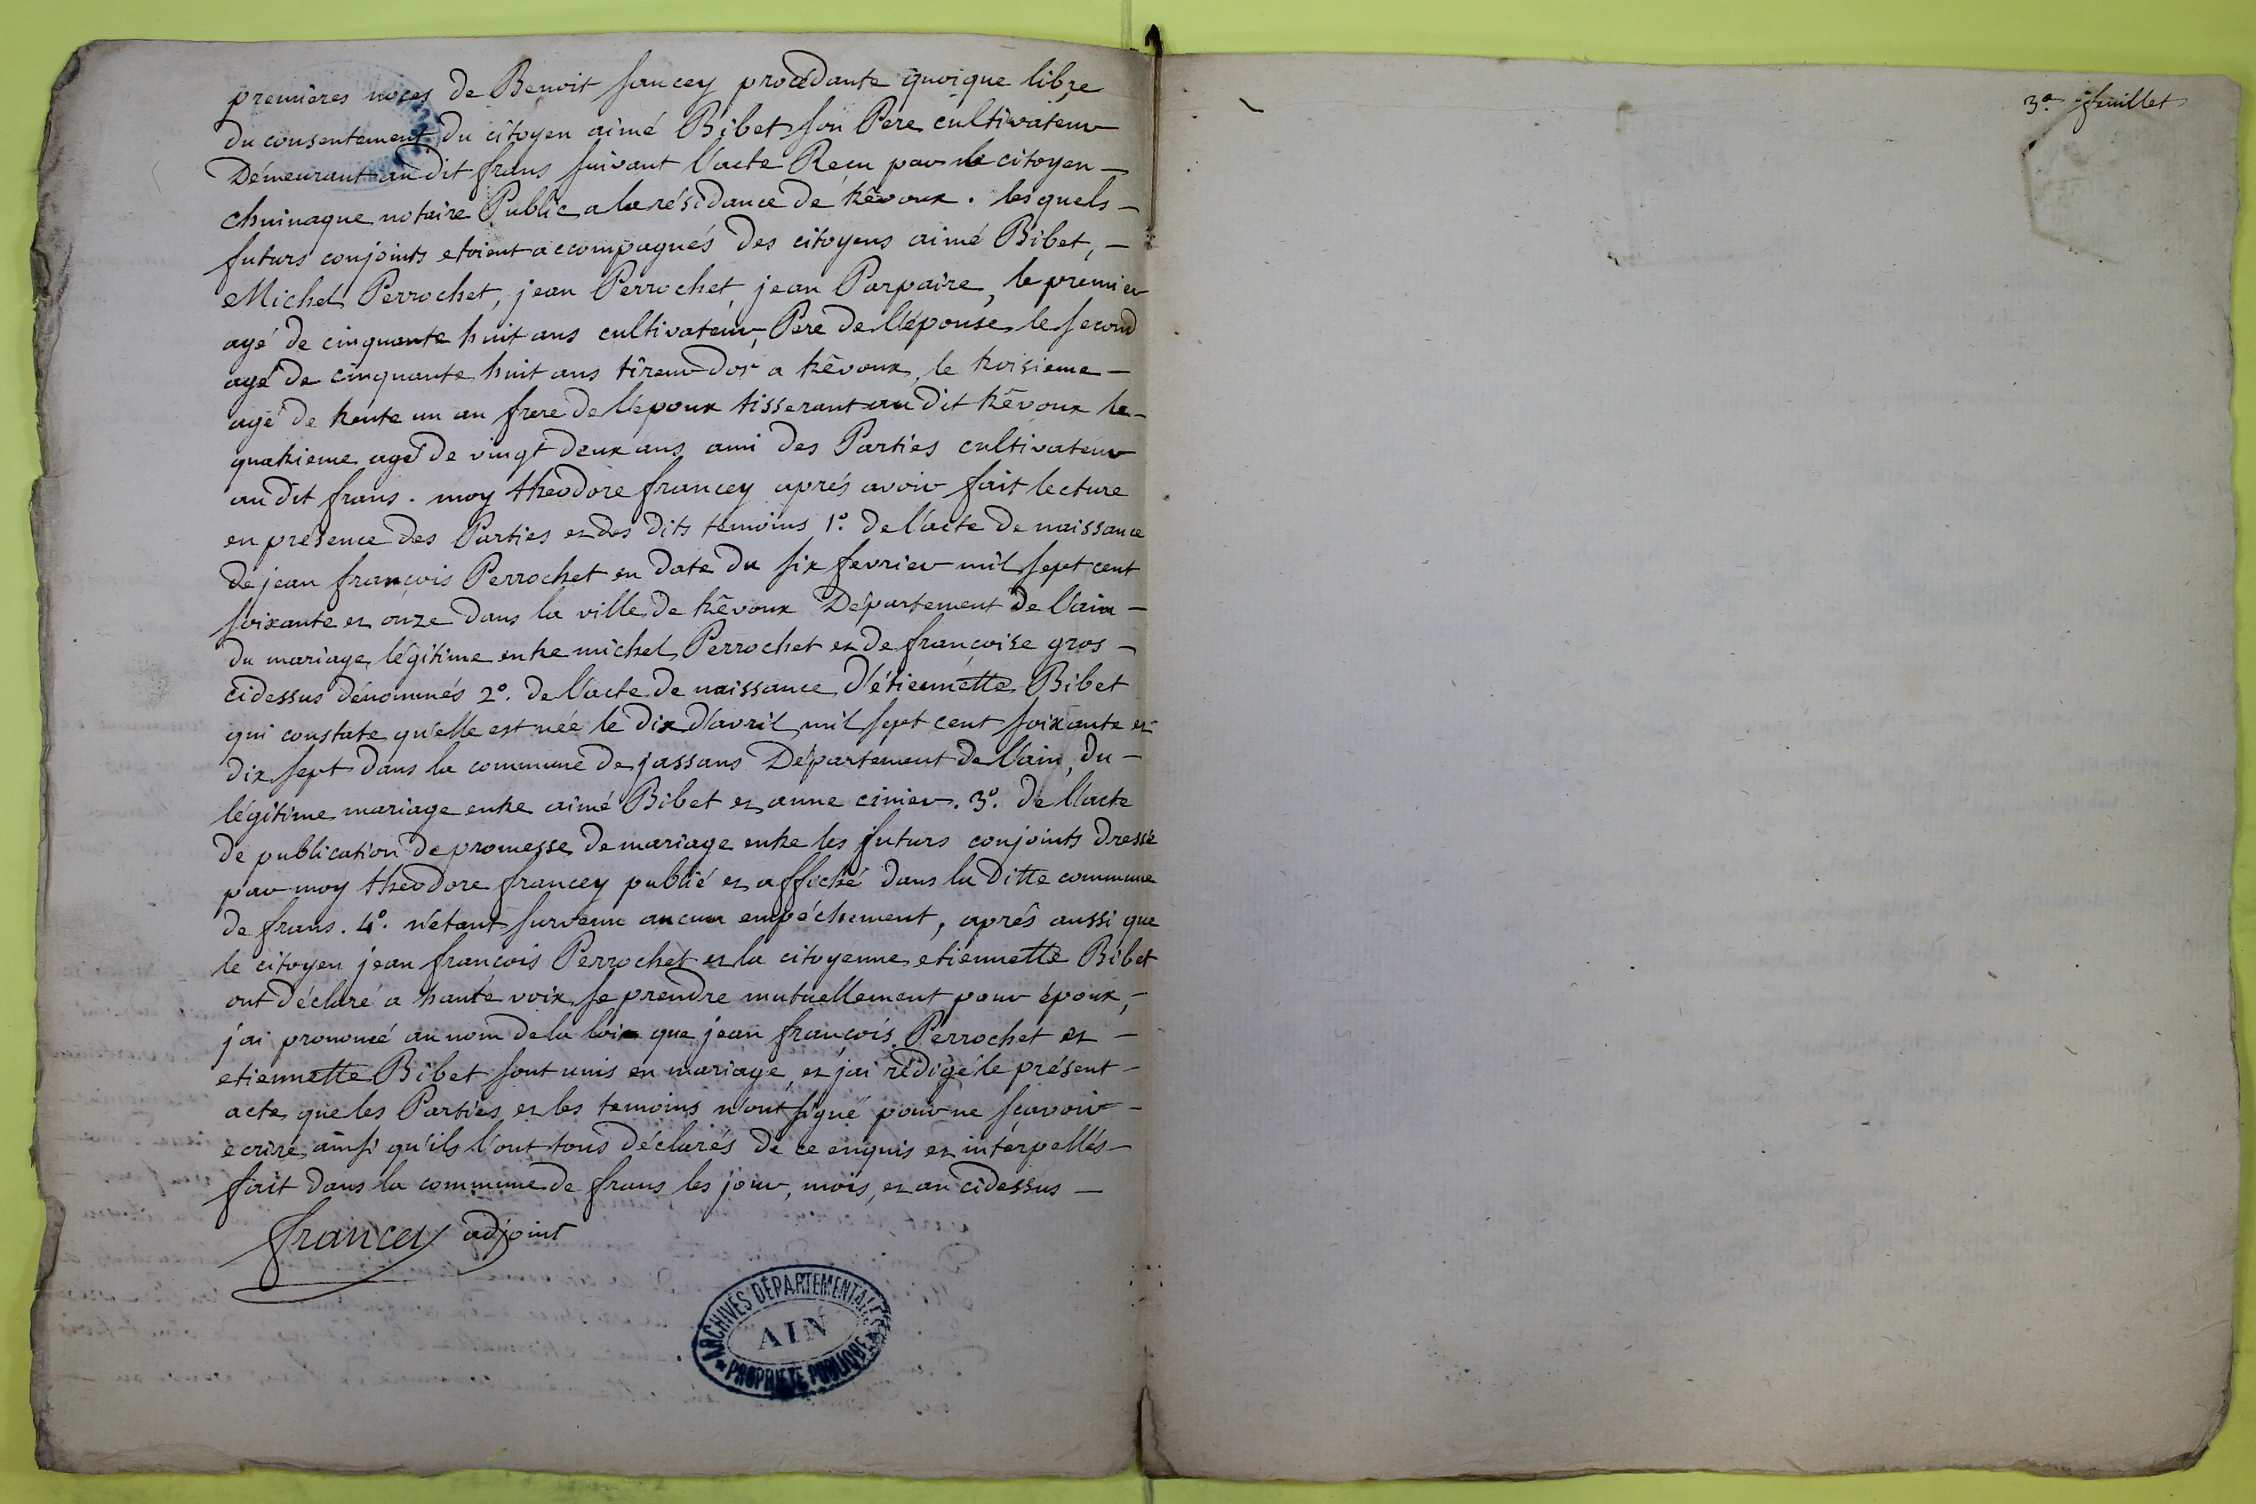 premieres noces de Benoit sancey procédante quoique libre
du consentement du citoyen aimé Bibet son Pere cultivateur
Démeurant au dit frans suivant l'acte Reçu par le citoyen —
chuinague notaire Public a la résidance de trêvoux . lesquels —
futurs conjoints etoient accompagnés des citoyens aimé Bibet, —
Michel Perrochet, jean Perrochet, jean Parpaire, le premier
agé de cinquante huit ans cultivateur, Pere de l'épouse, le second
agé de cinquante huit ans tîreur dor a trêvoux, le troisieme —
agé de trente un an frere de l'epoux tisserant au dit trêvoux le —
quatrieme agé de vingt deux ans ami des Parties cultivateur
au dit frans . moy théodore francey aprés avoir fait lecture
en présence des Parties et des dits temoins 1º. de l'acte de naissance
de jean françois Perrochet en date du six fevrier mil sept cent
soixante et onze dans la ville de trêvoux Département de l'ain —
du mariage légitime entre michel Perrochet et de françoise gros —
cidessus dénommés 2º. de l'acte de naissance d'étiennette Bibet
qui constate qu'elle est née le dix d'avril mil sept cent soixante et
dix sept dans la commune de jassans Département de l'ain, du —
légitime mariage entre aimé Bibet et anne cinier . 3º. de l'acte
de publication de promesse de mariage entre les futurs conjoints dressé
par moy théodore francey publié et affiché dans la ditte commune
de frans . 4º. n'etant survenu aucun empéchement, aprés aussi que
le citoyen jean françois Perrochet et la citoyenne etiennette Bibet
ont déclaré a haute voix se prendre mutuellement pour époux, —
j'ai prononcé au nom de la loix que jean françois Perrochet et —
etiennette Bibet sont unis en mariage, et j'ai rédigé le présent —
acte que les Parties et les temoins n'ont signé pour ne sçavoir —
écrire ainsi qu'ils l'ont tous déclarés de ce enquis et intérpellés —
fait dans la commune de frans les jour, mois, et an cidessus —
francey adjoint
ARCHIVES DÉPARTEMENTALES
AIN
PROPRIÉTÉ PUBLIQUE
3e. feuillet